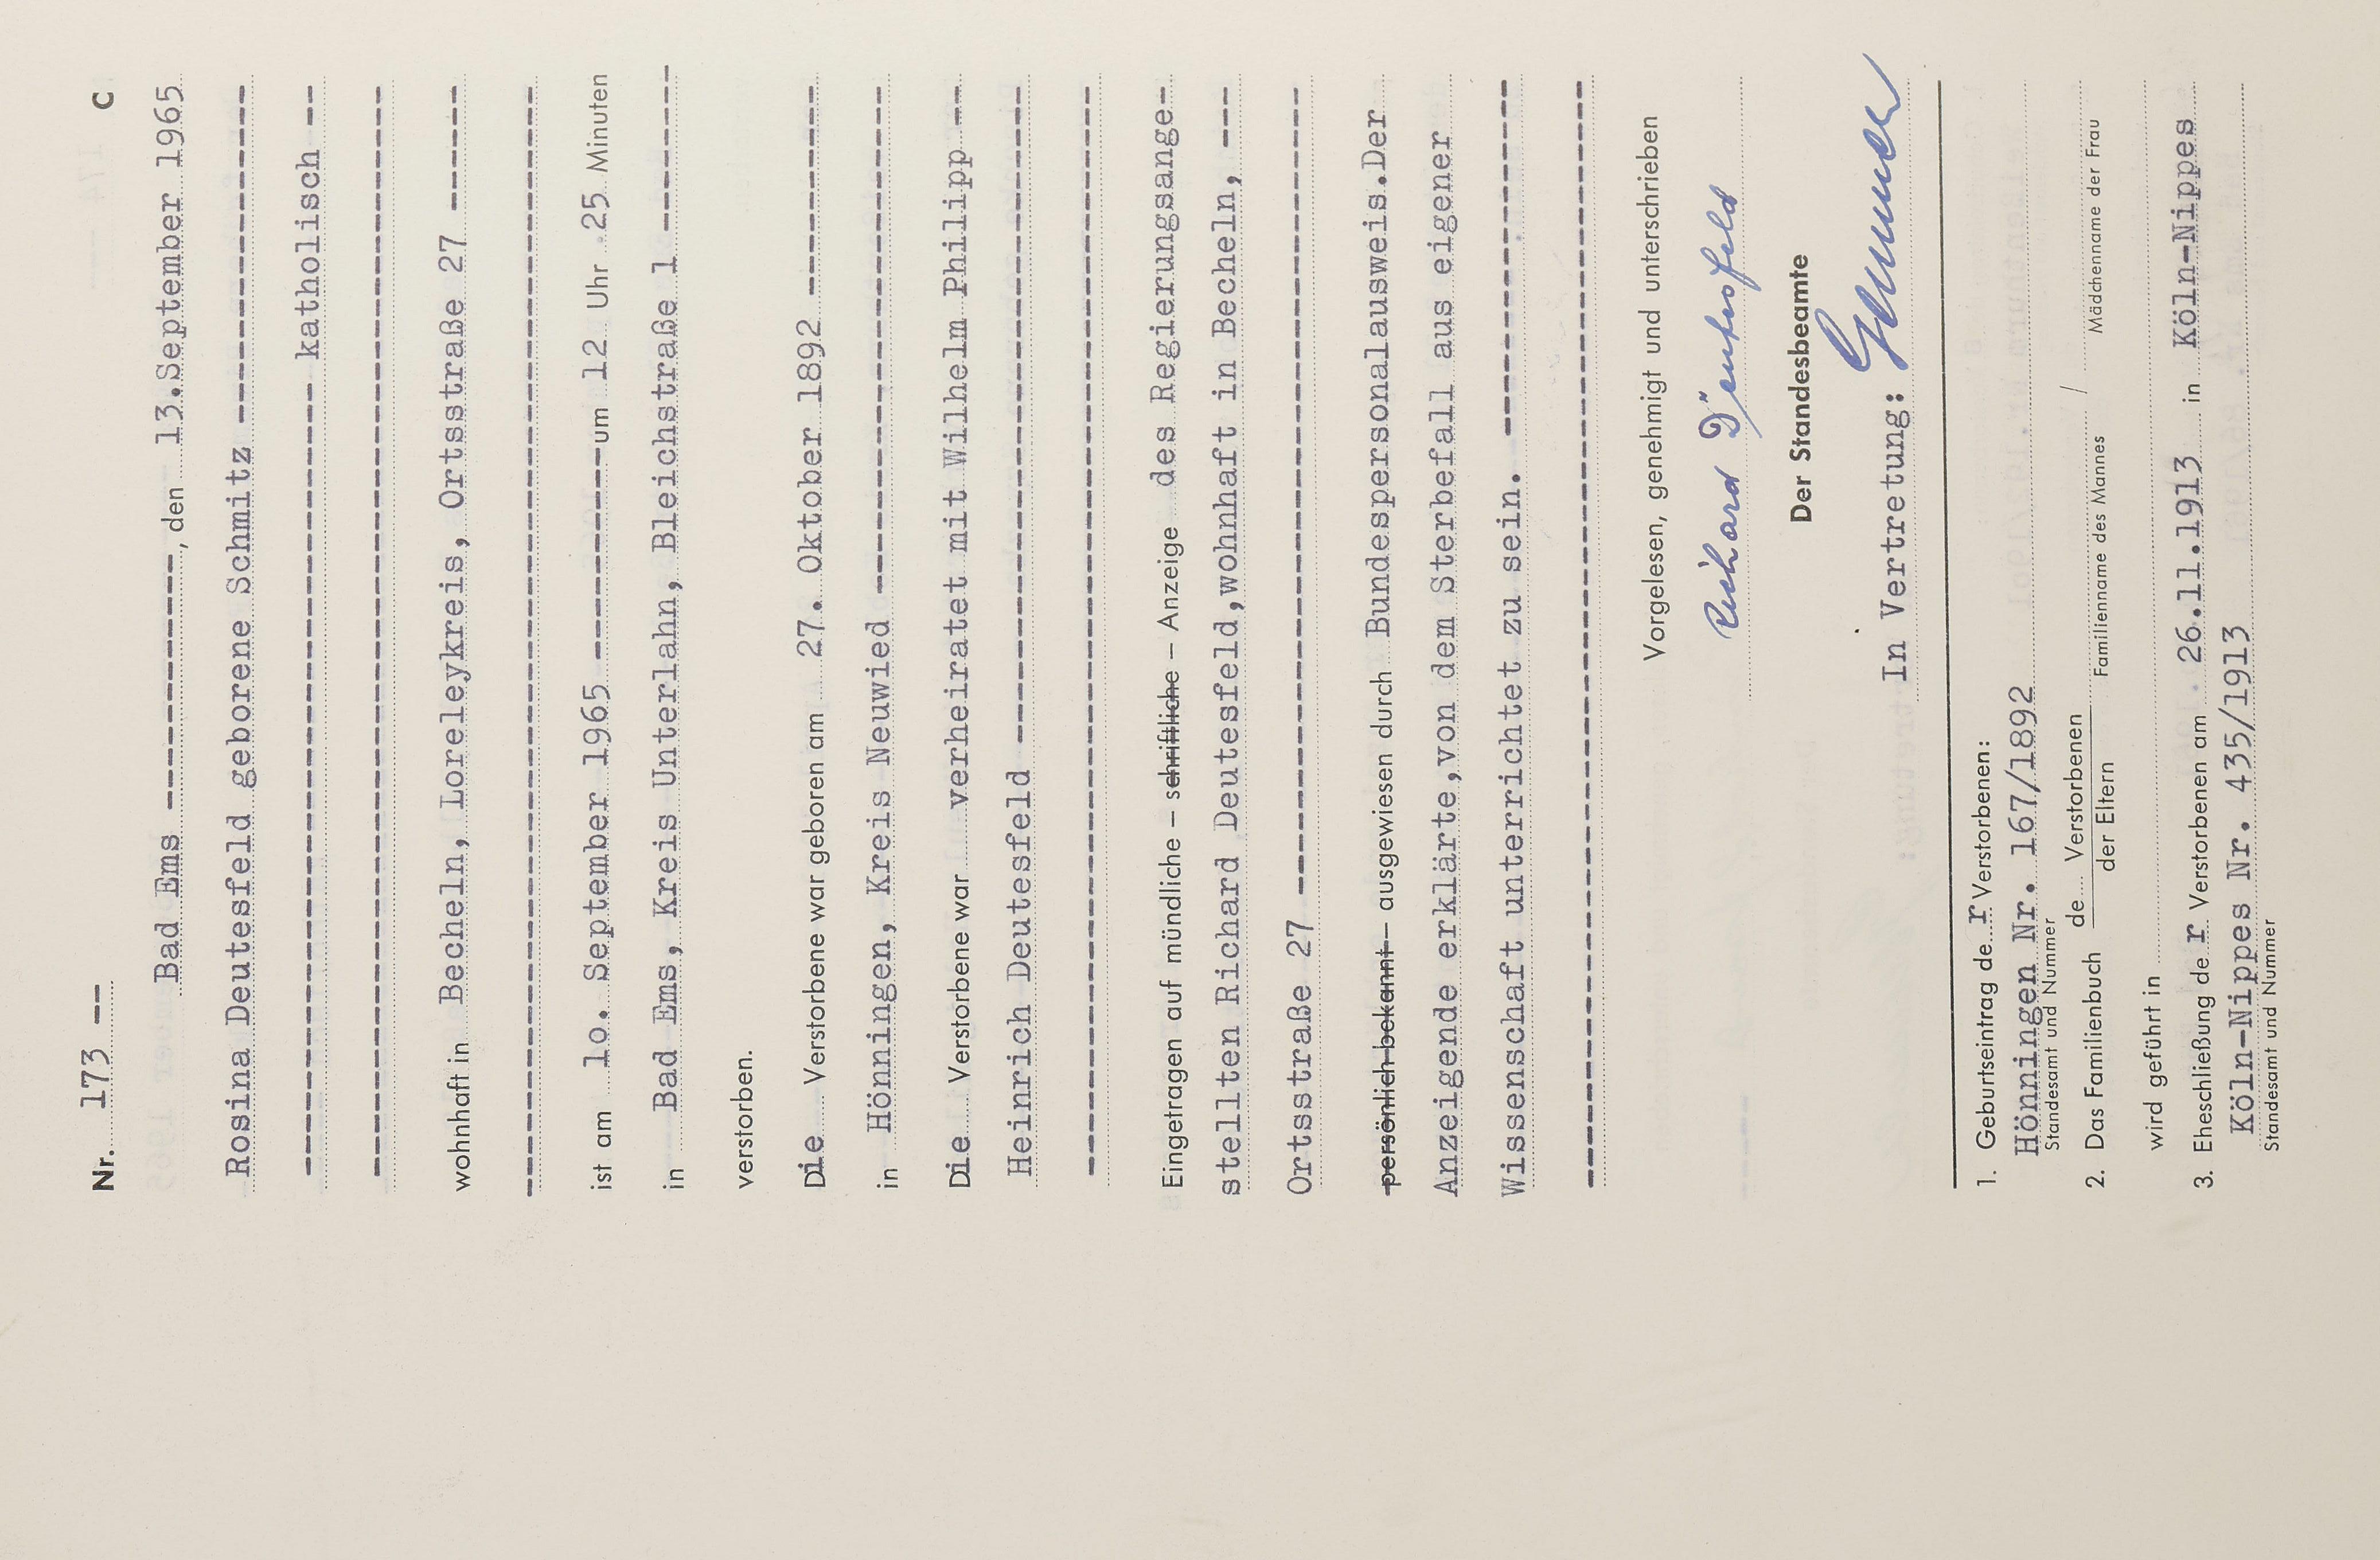 Nr. 173 -- C
Bad Ems ------------, den 13.September 1965
Rosina Deutesfeld geborene Schmitz ----------------
---------------------------------------- katholisch --
------------------------------------------------------
wohnhaft in Becheln, Loreleykreis, Ortsstraße 27 ------
------------------------------------------------------
ist am 10. September 1965 ----------um 12 Uhr 25 Minuten
in Bad Ems, Kreis Unterlahn, Bleichstraße 1 --------
verstorben.
Die Verstorbene war geboren am 27. Oktober 1892 ----------
in Hönningen, Kreis Neuwied ------------------------
Die Verstorbene war verheiratet mit Wilhelm Philipp --
Heinrich Deutesfeld --------------------------------
------------------------------------------------------
Eingetragen auf mündliche – schriftliche – Anzeige des Regierungsange-
stellten Richard Deutesfeld,wohnhaft in Becheln, ---
Ortsstraße 27 ---------------------------------------
persönlich bekannt – ausgewiesen durch Bundespersonalausweis.Der
Anzeigende erklärte,von dem Sterbefall aus eigener
Wissenschaft unterrichtet zu sein. -----------------
------------------------------------------------------
Vorgelesen, genehmigt und unterschrieben
Richard Deutesfeld
Der Standesbeamte
In Vertretung:
1. Geburtseintrag der Verstorbenen:
Hönningen Nr. 167/1892
Standesamt und Nummer
2. Das Familienbuch de Verstorbenen / der Eltern /
Familienname des Mannes Mädchenname der Frau
wird geführt in
3. Eheschließung der Verstorbenen am 26.11.1913 in Köln-Nippes
Köln-Nippes Nr. 435/1913
Standesamt und Nummer